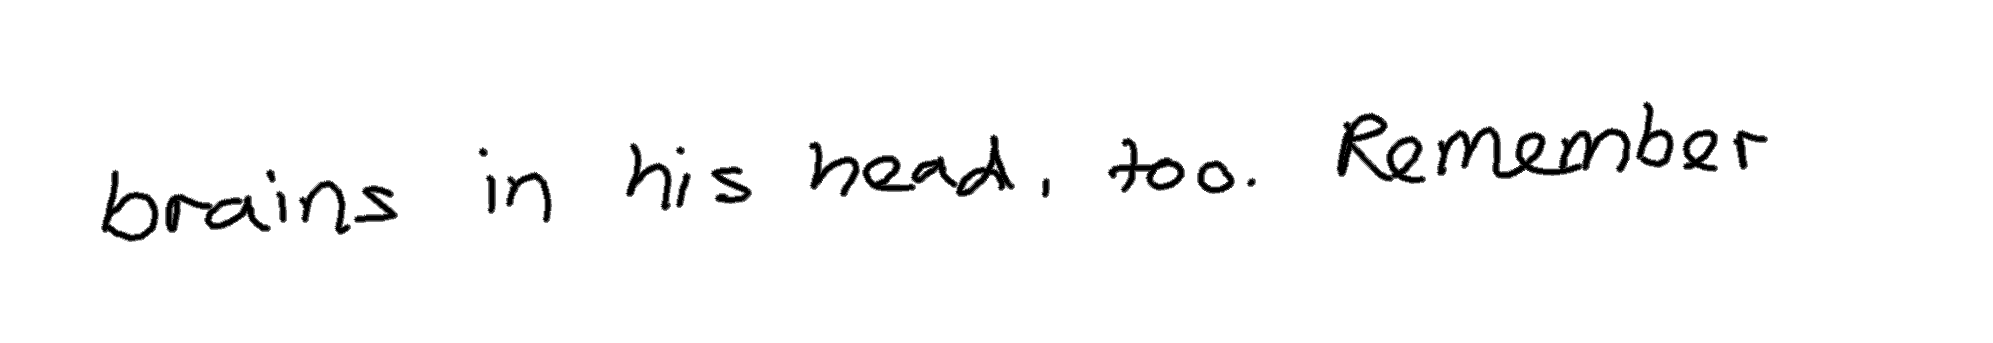 brains in his head, too. Remember